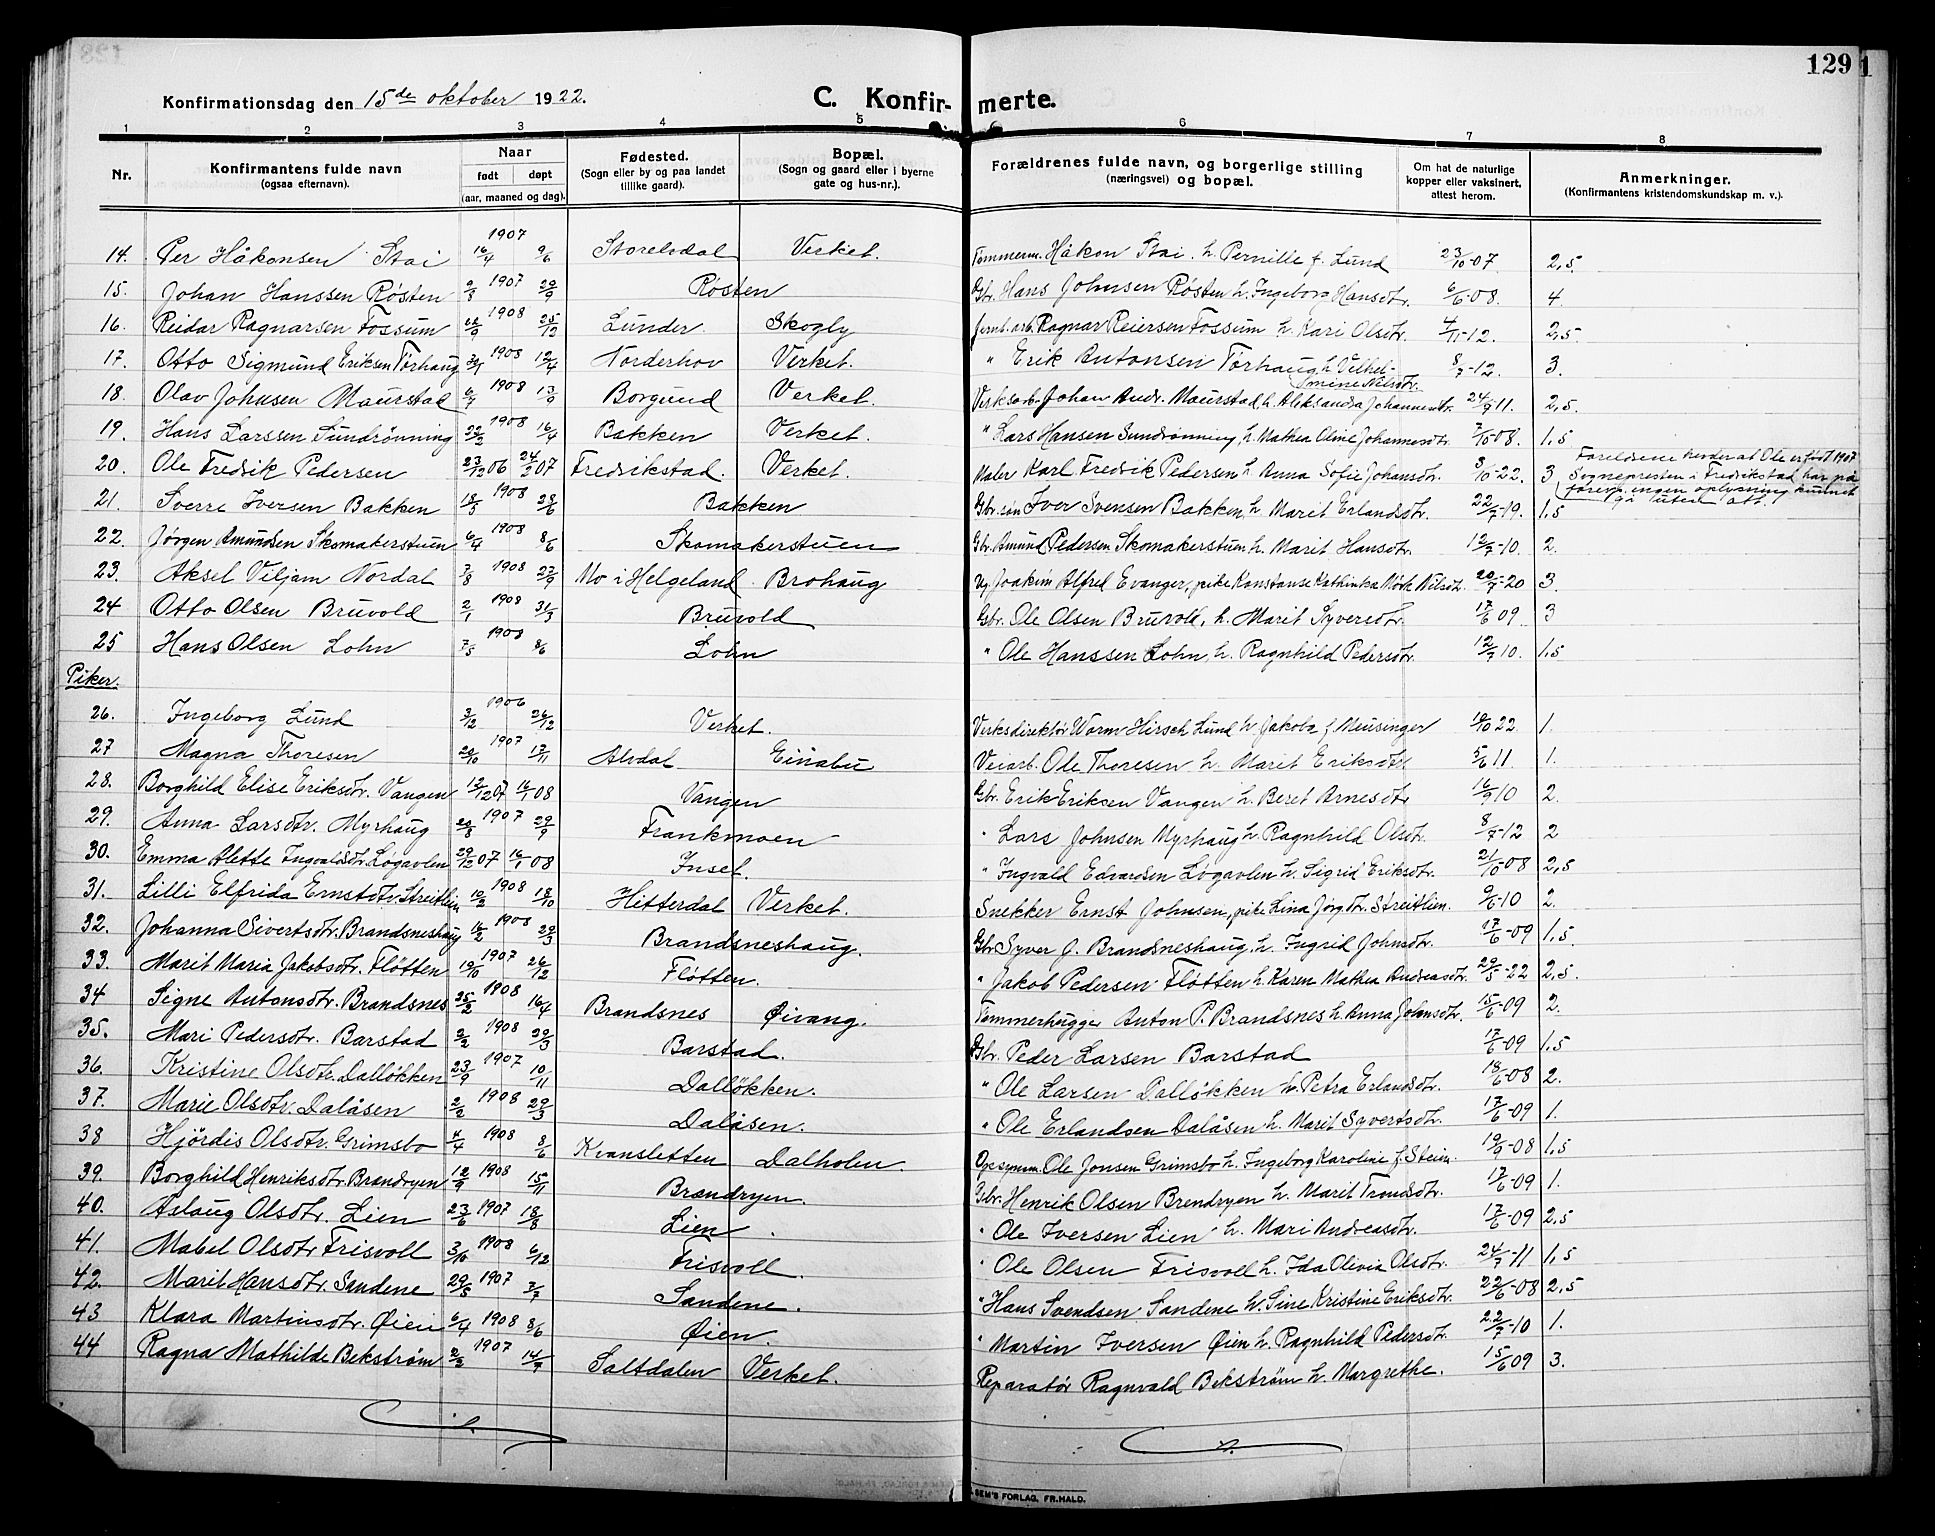 129
Konfirmationsdag den 15de oktober 1922.
C. Konfirmerte.
1 2 3 4 5 6 7 8
Nr. Konfirmantens fulde navn (ogsaa efternavn). Naar født døpt (aar, maaned og dag). Fødested. (Sogn eller by og paa landet tillike gaard). Bopæl. (Sogn og gaard eller i byerne gate og hus-nr.). Forældrenes fulde navn, og borgerlige stilling (næringsvei) og bopæl. Om hat de naturlige kopper eller vaksinert, attest herom. Anmerkninger. (Konfirmantens kristendomskundskap m. v.).
14. Per Håkonsen Stai 1907 16/4 9/6 Storelvdal Verket. Tømmerm. Håkon Stai. h. Pernille f. Lund 23/10-07 2,5.
15. Johan Hanssen Røsten 1907 29/9 Røsten Gbr. Hans Johnsen Røsten h. Ingeborg Hansdtr. 6/6-08. 4.
16. Reidar Ragnarsen Fossum 1908 25/12 Lunder. Skogly Jernb.arb. Ragnar Reiersen Fossum h. Kari Olsdtr. 4/11-12. 2,5.
17. Otto Sigmund Eriksen Tørhaug 1908 12/4 Norderhov Verket. " Erik Antonsen Tørhaug h. Vilhelmine Nilsdtr. 8/7-12. 3.
18. Olav Johnsen Maurstad 1908 6/7 13/9 Borgund Verket. Verksarb. Johan Andr. Maurstad h. Aleksandra Johannesdtr. 24/9 11. 2,5.
19. Hans Larssen Sundrønning 1908 22/2 16/4 Bakken Verket. " Lars Hansen Sundrønning h. Mathea Oline Johannesdtr. 7/10-08. 1,5
20. Ole Fredrik Pedersen 23/12 06 24/2 07 Fredrikstad. Verket. Maler Karl Fredrik Pedersen h. Anna Sofie Johansdtr. 3/10-22. 3 Foreldrene hevder at Ole er født 1907 Sognepresten i Fredrikstad har på foresp. ingen oplysning kunnet gi uten att.
21. Sverre Iversen Bakken 1908 18/5 28/6 Bakken Gbr.søn Iver Svensen Bakken, h. Marit Erlandsdtr. 22/7-19. 1,5
22. Jørgen Amundsen Skomakerstuen 1908 6/4 8/6 Skomakerstuen Gbr. Amund Pedersen Skomakerstuen h. Marit Hansdtr. 12/7-10. 2.
23. Aksel Viljam Nordal 1908 7/8 27/9 Mo i Helgeland. Brohaug Ug. Joakim Alfred Evanger, pike Konstanse Kathinka Mørk Nilsdtr. 20/7-20 3.
24 Otto Olsen Bruvold 1908 2/1 31/3 Bruvold Gbr. Ole Olsen Bruvold, h. Marit Syversdtr. 17/6 09 3
25 Hans Olsen Lohn 1908 7/5 8/6 Lohn " Ole Hanssen Lohn, h. Ragnhild Pedersdtr. 12/7 10. 1,5
Piker.
26. Ingeborg Lund 1906 3/12 26/12 Verket. Verksdirektør Worm Hirsch Lund h. Jakobe f. Meusinger 10/10 22 1.
27 Magna Thoresen 1907 20/10 17/11 Alvdal Einabu Veiarb. Ole Thoresen h. Marit Eriksdtr 5/6 11 1.
28. Borghild Elise Eriksdtr. Vangen 12/12 07 16/1 08 Vangen Gbr. Erik Eriksen Vangen h. Beret Arnesdtr 16/9 10 2.
29. Anna Larsdtr. Myrhaug 1907 20/8 29/9 Frankmoen " Lars Johnsen Myrhaug h. Ragnhild Olsdtr. 8/7-12 2
30. Emma Alette Ingvaldsdtr. Løgavlen 29/12 07 16/1 08 Inset. " Ingvald Edvardsen Løgavlen h. Sigrid Eriksdtr. 21/10-08 2,5
31. Lilli Elfrida Ernstsdtr. Streitlien 1908 10/2 18/10 Hitterdal Verket. Snekker Ernst Johnsen, pike Lina Jørg.dtr. Streitlien. 9/6-10 2.
32. Johanna Sivertsdtr. Brandsneshaug 1908 16/2 29/3 Brandsneshaug. Gbr. Syver J. Brandsneshaug, h. Ingrid Johnsdtr. 17/6-09 1,5.
33. Marit Maria Jakobsdtr. Fløtten 1907 19/10 26/12 Fløtten. " Jakob Pedersen Fløtten h. Karen Mathea Andreasdtr. 29/5-22 2,5.
34 Signe Antonsdtr. Brandsnes 1908 25/2 16/4 Brandsnes Øivang. Tømmerhugger Anton P. Brandsnes h. Anna Johansdtr. 15/6-09 2.
35. Mari Pedersdtr. Barstad 1908 2/2 29/3 Barstad. Gbr. Peder Larsen Barstad 17/6-09 1.5
36. Kristine Olsdtr. Dalløkken 1907 23/9 10/11 Dalløkken. " Ole Larsen Dalløkken h. Petra Erlandsdtr. 18/6-08 2.
37. Marie Olsdtr. Dalåsen 1908 2/2 29/3 Dalåsen. " Ole Erlandsen Dalåsen h. Marit Syvertsdtr. 17/6-09 1.
38 Hjördis Olsdtr. Grimsbo 1908 4/4 8/6 Kvansletten Dalholen. Opsynsm. Ole Jonsen Grimsbo h. Ingeborg Karoline f. Steim. 10/9-08 1,5
39. Borghild Henriksdtr. Brændryen 1908 12/9 15/11 Brændryen. Gbr. Henrik Olsen Brendryen h. Marit Trondsdtr. 17/6-09 1.
40. Aslaug Olsdtr. Lien 1907 23/6 18/8 Lien. " Ole Iversen Lien h. Mari Andreasdtr. 17/6-09 2,5
41. Mabel Olsdtr Frisvoll 1908 3/10 6/12 Frisvoll. " Ole Olsen Frisvoll h. Ida Olivia Olsdtr. 24/7-11 1,5
42. Marit Hansdtr. Sandene 1907 29/5 3/7 Sandene. " Hans Svendsen Sandene h. Sine Kristine Eriksdtr. 22/6-08 2,5
43 Klara Martinsdtr. Øien 1908 6/4 8/6 Øien. " Martin Iversen Øien h. Ragnhild Pedersdtr. 22/7-10 1.
44 Ragna Mathilde Bekstrøm 1907 2/3 14/7 Saltdalen Verket. Reparatør Ragnvald Bekstrøm h. Margrethe. 15/6 09 3.
SEM'S FORLAG, FR.HALD.